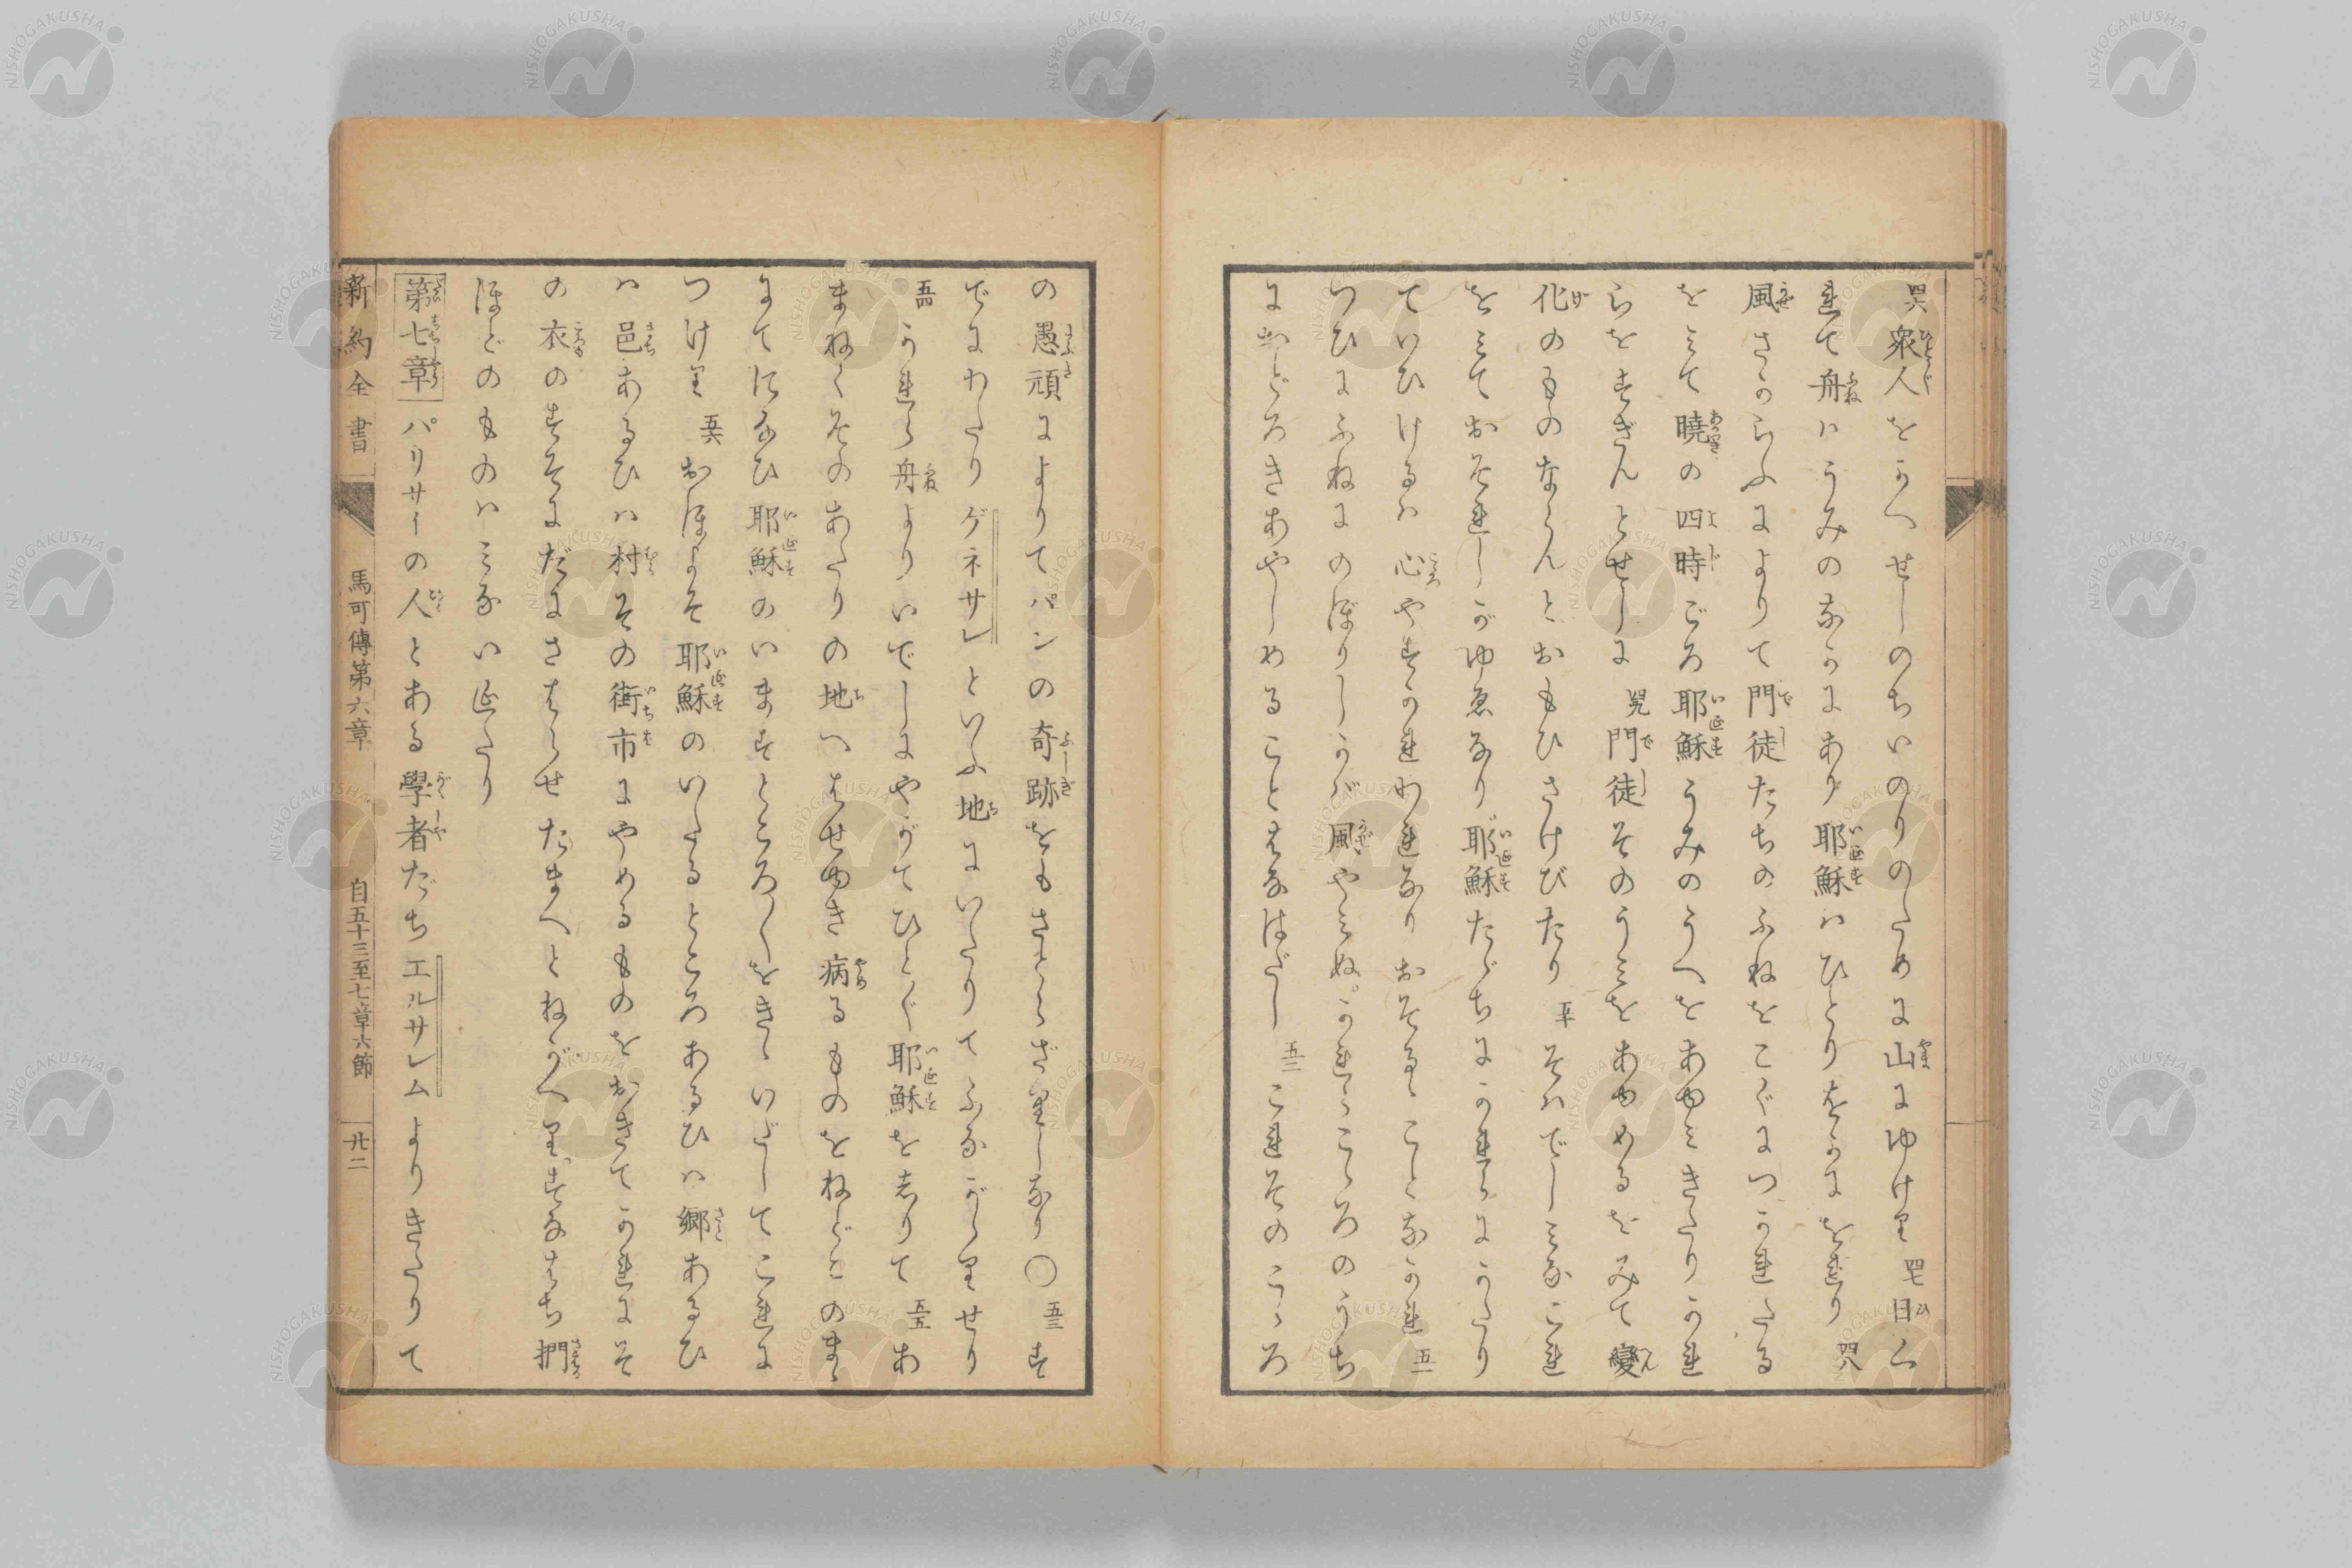 四六衆人をかへせしのちいのりのため𛂋山𛂋ゆけり 四七日く
れて舟ハうみのなか𛂋あり耶穌ハひとりをか𛂋をれり 四八
風さからふ𛂋よりて門徒たちのふねをこぐ𛂋つかれたる
をみて曉の四時ごろ耶穌うみのうへをあゆみきたりかれ
らをすぎんとせし𛂋 四九門徒そのうミをあゆめるをみて變
化のものならんとおもひさけびたり 五十そハでしミなこれ
をミておそれしがゆゑなり耶穌たゞち𛂋かれら𛂋かたり
ていひけるハ心やすかれわれなりおそるゝことなかれ 五一
つひ𛂋ふね𛂋のぼりしかバ風やミぬかれらこゝろのうち
𛂋おどろきあやしめることはなはだし 五二これそのこゝろ
の愚頑𛂋よりてパンの奇跡をもさとらざりしなり〇 五三す
で𛂋わたりゲネサレといふ地𛂋いたりてふながゝりせり
五四かれら舟よりいでし𛂋やがてひとゞ耶穌を志りて 五五あ
まねくそのあたりの地へはせゆき病るものをねどこのまゝ
𛂋て𛂋なひ耶穌のいますところ〱をきゝいだしてこれ𛂋
つけり 五六おほよそ耶穌のいたるところあるひハ郷あるひ
ハ邑あるひハ村その街市𛂋やめるものをおきてかれ𛂋そ
の衣のすそ𛂋だ𛂋さはらせたまへとねがへりすなはち捫
ほどのものハミないえたり
第七章 パリサイの人とある學者たちエルサレムよりきたりて
新約全書 馬可傳第六章 自五十三至七章六節 廿二